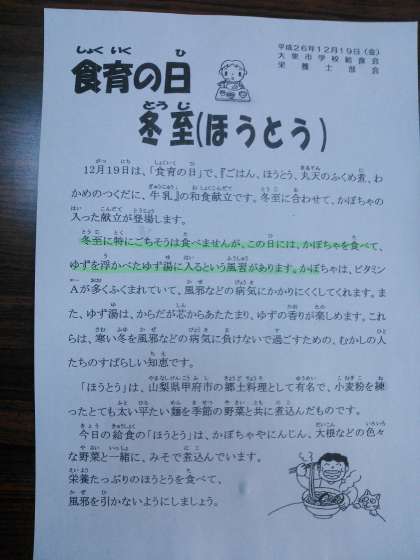 平成26年12月19日(金)
大東市学校給食会
栄養士部会
しょく いく ひ
食育の日
とう じ
冬至(ほうとう)
12月19日は、「食育の日」で、『ごはん、ほうとう、丸天のふくめ煮、わ
かめのつくだに、牛乳』の和食献立です。冬至に合わせて、かぼちゃの
入った献立が登場します。
冬至に特にごちそうは食べませんが、この日には、かぼちゃを食べて、
ゆずを浮かべたゆず湯に入るという風習があります。かぼちゃは、ビタミン
Aが多くふくまれていて、風邪などの病気にかかりにくくしてくれます。ま
た、ゆず湯は、からだが芯からあたたまり、ゆずの香りが楽しめます。これ
らは、寒い冬を風邪などの病気に負けないで過ごすための、むかしの人
たちのすばらしい知恵です。
「ほうとう」は、山梨県甲府市の郷土料理として有名で、小麦粉を練
ったとても太い平たい麺を季節の野菜と共に煮込んだものです。
今日の給食の「ほうとう」は、かぼちゃやにんじん、大根などの色々
な野菜と一緒に、みそで煮込んでいます。
栄養たっぷりのほうとうを食べて、
風邪を引かないようにしましょう。